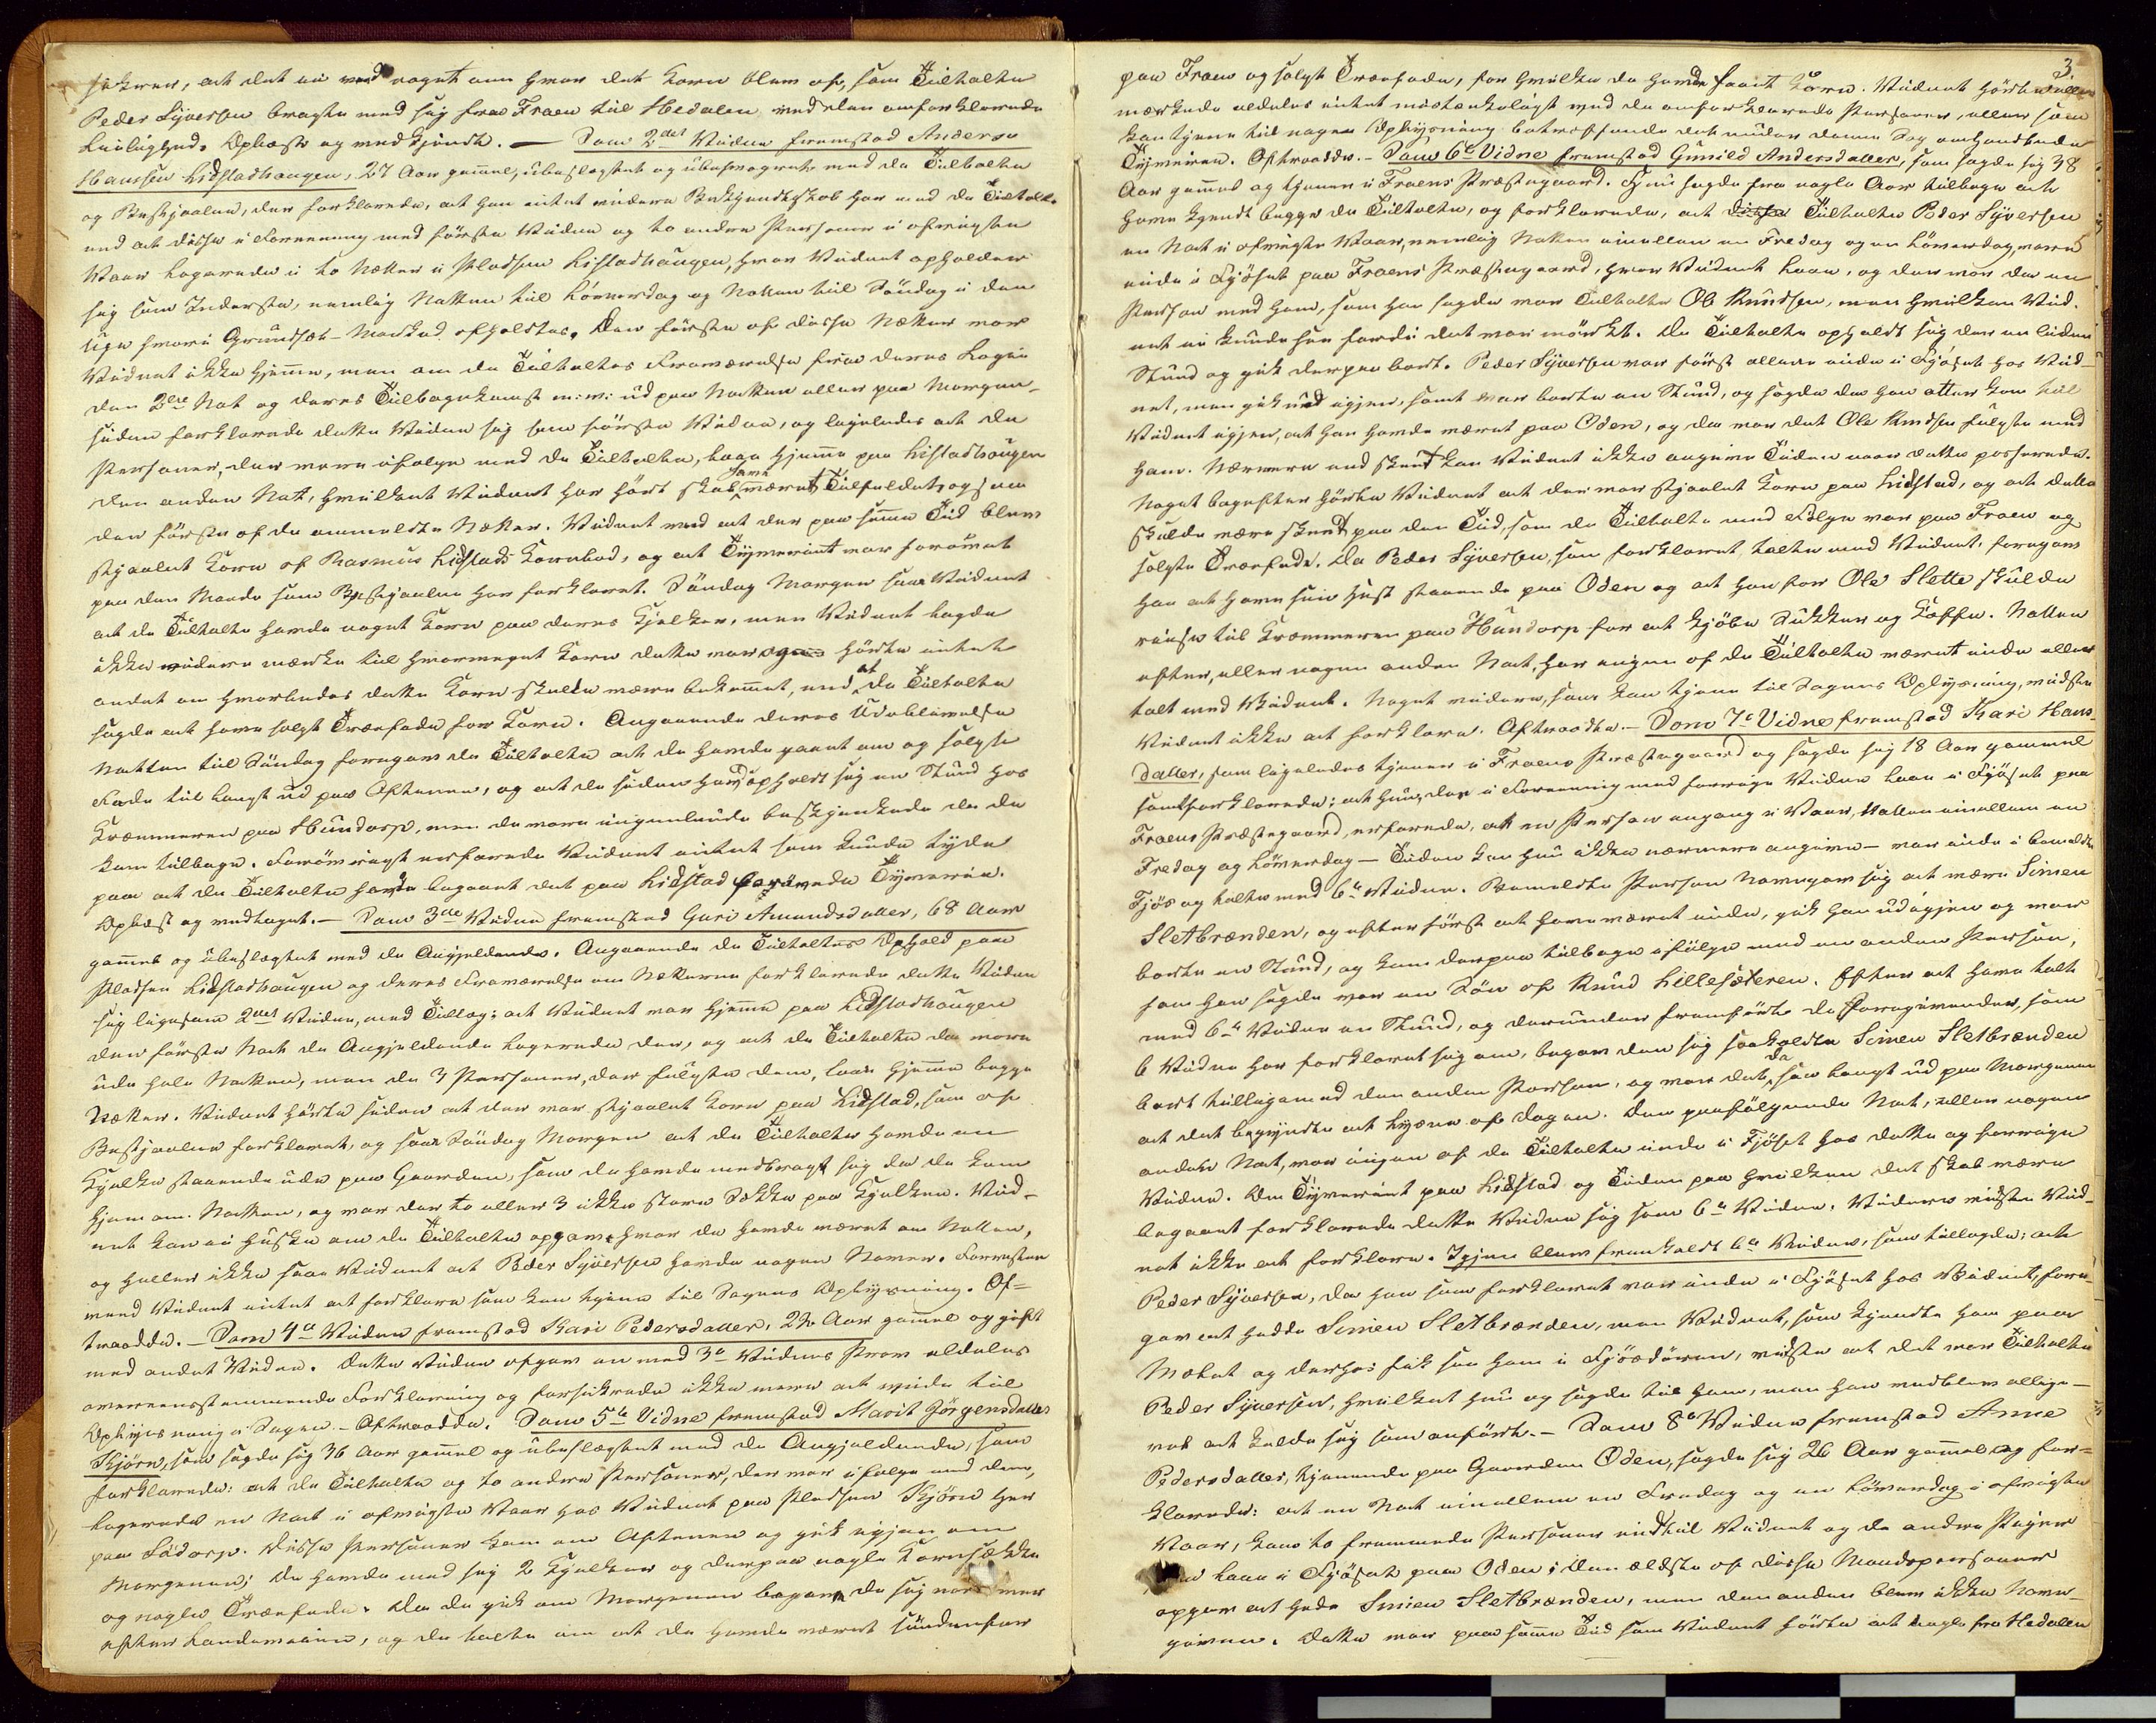 sikrer, at det ei veed noget om hvor det Korn blev af, som Tiltalte
Peder Syversen bragte med sig fra Fraen til Hedalen ved den omforklarede
Leilighed. Oplæst og vedkjendt. — Som 2det Vidne fremstod Anders
Hanssen Lidstadhaugen, 27 Aar gammel, ubeslægtet og ubesvogret med de Tiltalte
og Bestjaalne, der forklarede, at han intet videre Bekjendtskab har med de Tiltalte
end at disse i Forening med første Vidne og to andre Personer i afvigte
Vaar logerede i to Nætter i Pladsen Lidstadhaugen, hvor Vidnet opholder
sig som Inderste, nemlig Natten til Löverdag og Natten til Söndag i den
Uge hvori Grundset-Marked afholdtes. Den første af disse Nætter var
Vidnet ikke hjemme, men om de Tiltaltes Fraværelse fra deres Logi
den 2den Nat og deres Tilbagekomst m: v: ud paa Natten eller paa Morgen-
siden forklarede dette Vidne sig som første Vidne, og ligeledes at de
Personer, der vare ifølge med de Tiltalte, laae hjemme paa Lidstadhaugen
den anden Nat, hvilket Vidnet har hørt skal have været Tilfældet ogsaa
den første af de anmeldte Nætter. Vidnet veed at der paa samme Tid blev
stjaalet Korn af Rasmus Lidstads Kornbod, og at Tyveriet var forøvet
paa den Maade som Bestjaalne har forklaret. Söndag Morgen saae Vidnet
at de Tiltalte havde noget Korn paa deres Kjelker, men Vidnet lagde
ikke videre mærke til hvormeget Korn dette var og hørte intet
andet om hvorledes dette Korn skulde være bekommet, end at de Tiltalte
sagde at have solgt Trærfade for Korn. Angaaende deres Udeblivelse
Natten til Söndag foregave de Tiltalte at de havde gaaet om og solgt
Fade til langt ud paa Aftenen, og at de siden havde opholdt sig en Stund hos
Kræmmeren paa Hundorp, men de vare ingenlunde beskjænkede da de
kom tilbage. Forøvrigt erfarede Vidnet intet som kunde tyde
paa at de Tiltalte havde begaaet det paa Lidstad forøvede Tyverie.
Oplæst og vedtaget. — Som 3die Vidne fremstod Guri Amundsdatter, 68 Aar
gammel og ubeslægtet med de Angjeldende. Angaaende de Tiltaltes Ophold paa
Pladsen Lidstadhaugen og deres Fraværelse om Nætterne forklarede dette Vidne
sig ligesom 2det Vidne, med Tillæg: at Vidnet var hjemme paa Lidstadhaugen
den første Nat de Angjeldende logerede der, og at de Tiltalte da vare
ude hele Natten, men de 3 Personer, der fulgte dem, laae hjemme begge
Nætter. Vidnet hørte siden at der var stjaalet Korn paa Lidstad, som af
Bestjaalne forklaret, og saae Söndag Morgen at de Tiltalte havde en
Kjelke staaende ude paa Gaarden, som de havde medbragt sig da de kom
hjem om Natten, og var der to eller 3 ikke store Sække paa Kjelken. Vid-
net kan ei huske om de Tiltalte opgave hvor de havde været om Natten,
og heller ikke saae Vidnet at Peder Syversen havde nogen Penge. Forresten
veed Vidnet intet at forklare som kan tjene til Sagens Oplysning. Af-
traadde. — Som 4de Vidne fremstod Kari Pedersdatter, 22 Aar gammel og gift
med andet Vidne. Dette Vidne afgav en med 3die Vidnes Prov aldeles
overeensstemmende Forklaring og forsikrede ikke mere at vide til
Oplysning i Sagen. — Aftraadde. Som 5te Vidne fremstod Marit Jörgensdatter
Kjörn, som sagde sig 36 Aar gammel og ubeslægtet med de Angjeldende, som
forklarede: at de Tiltalte og to andre Personer, der var i følge med dem,
logerede en Nat i afvigte Vaar hos Vidnet paa Pladsen Kjörn her
paa Södorp. Disse Personer kom om Aftenen og gik igjen om
Morgenen; de havde med sig 2 Kjelker og derpaa nogle Kornsække
og nogle Trærfade. Da de gik om Morgenen begave de sig nord over
efter Landeveien, og de talte om at de havde været söndenfor
3.
paa Fraen og solgt Trærfade, for hvilke de havde faaet Korn. Vidnet hørte eller
mærkede aldeles intet mistænkeligt ved de omforklarede Personer, eller som
kan tjene til nogen Oplysning betræffende det under denne Sag omhandlede
Tyverie. Aftraadde. — Som 6te Vidne fremstod Gunild Andersdatter, som sagde sig 38
Aar gammel og tjener i Fraens Præstegaard. Hun sagde fra nogle Aar tilbage at
have kjendt begge de Tiltalte, og forklarede, at Tiltalte Peder Syversen
en Nat i afvigte Vaar, nemlig Natten imellem en Fredag og en Löverdag, var
inde i Fjöset paa Fraens Præstegaard, hvor Vidnet laae, og der var da en
Person med ham, som han sagde var Tiltalte Ole Knudsen, men hvilken Vid-
net ei kunde see fordi det var mörkt. De Tiltalte opholdt sig der en liden
Stund og gik derpaa bort. Peder Syversen var først allene inde i Fjöset hos Vid-
net, men gik ud igjen, samt var borte en Stund, og sagde da han atter kom til
Vidnet igjen, at han havde været paa Oden, og da var det Ole Knudsen fulgte med
ham. Nærmere end skeet kan Vidnet ikke angive Tiden naar dette passerede.
Noget bagefter hørte Vidnet at der var stjaalet Korn paa Lidstad, og at dette
skulde være skeet paa den Tid, som de Tiltalte med Følge var paa Fraen og
solgte Trærfade. Da Peder Syversen, som forklaret, talte med Vidnet, foregav
han at have sin Hest staaende paa Oden og at han for Ole Slette skulde
reise til Kræmmeren paa Hundorp for at kjöbe Sukker og Kaffe. Natten
efter, eller nogen anden Nat, har ingen af de Tiltalte været inde eller
talt med Vidnet. Noget videre, som kan tjene til Sagens Oplysning, vidste
Vidnet ikke at forklare. Aftraadde. — Som 7de Vidne fremstod Kari Hans-
datter, som ligeledes tjener i Fraens Præstegaard og sagde sig 18 Aar gammel
samt forklarede: at hun, der i Forening med forrige Vidne laae i Fjöset paa
Fraens Præstegaard, erfarede, at en Person engang i Vaar, Natten imellem en
Fredag og Löverdag — Tiden kan hun ikke nærmere angive — var inde i bemeldte
Fjös og talte med 6te Vidne. Bemeldte Person navngav sig at være Simen
Sletbrænden, og efter først at have været inde, gik han ud igjen og var
borte en Stund, og kom derpaa tilbage ifølge med en anden Person,
som han sagde var en Sön af Knud Lillesæteren. Efter at have talt
med 6te Vidne en Stund, og derunder fremført de Foregivender, som
6 Vidne har forklaret sig om, begav den sig saakaldte Simen Sletbrænden
bort tilligemed den anden Person, og var det da saa langt ud paa Morgenen
at det begyndte at lysne af Dagen. Den paafølgende Nat, eller nogen
anden Nat, var ingen af de Tiltalte inde i Fjöset hos dette og forrige
Vidne. Om Tyveriet paa Lidstad og Tiden paa hvilken det skal være
begaaet forklarede dette Vidne sig som 6te Vidne. Videre vidste Vid-
net ikke at forklare. Igjen blev fremkaldt 6te Vidne, som tillagde: at
Peder Syversen, da han som forklaret var inde i Fjöset hos Vidnet, fore-
gav at hedde Simen Sletbrænden, men Vidnet, som kjendte ham paa
Mælet og derhos fik see ham i Fjösdören, vidste at det var Tiltalte
Peder Syversen, hvilket hun og sagde til ham, men han vedblev allige-
vel at kalde sig som anført. — Som 8de Vidne fremstod Anne
Pedersdatter, tjenende paa Gaarden Oden, sagde sig 26 Aar gammel og for-
klarede: at en Nat imellem en Fredag og en Löverdag i afvigte
Vaar, kom to fremmede Personer ind til Vidnet og de andre Piger
laae i Fjöset paa Oden; den ældste af disse Mandspersoner
opgav at hede Simen Sletbrænden, men den anden blev ikke navn-
given. Dette var paa samme Tid som Vidnet hørte at nogle fra Hedalen